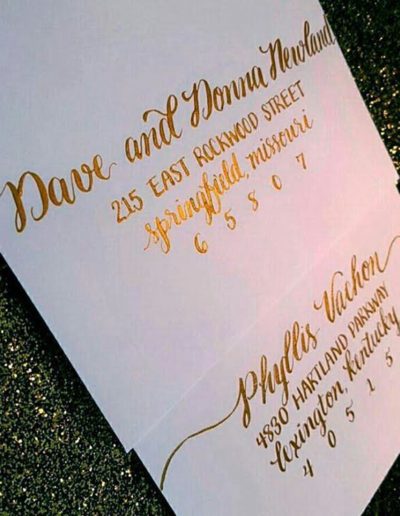 Dave and Donna Newland
215 EAST ROCKWOOD STREET
Springfield, Missouri
65807
Phyllis Vachon
4830 HARTLAND PARKWAY
Lexington, Kentucky
40515